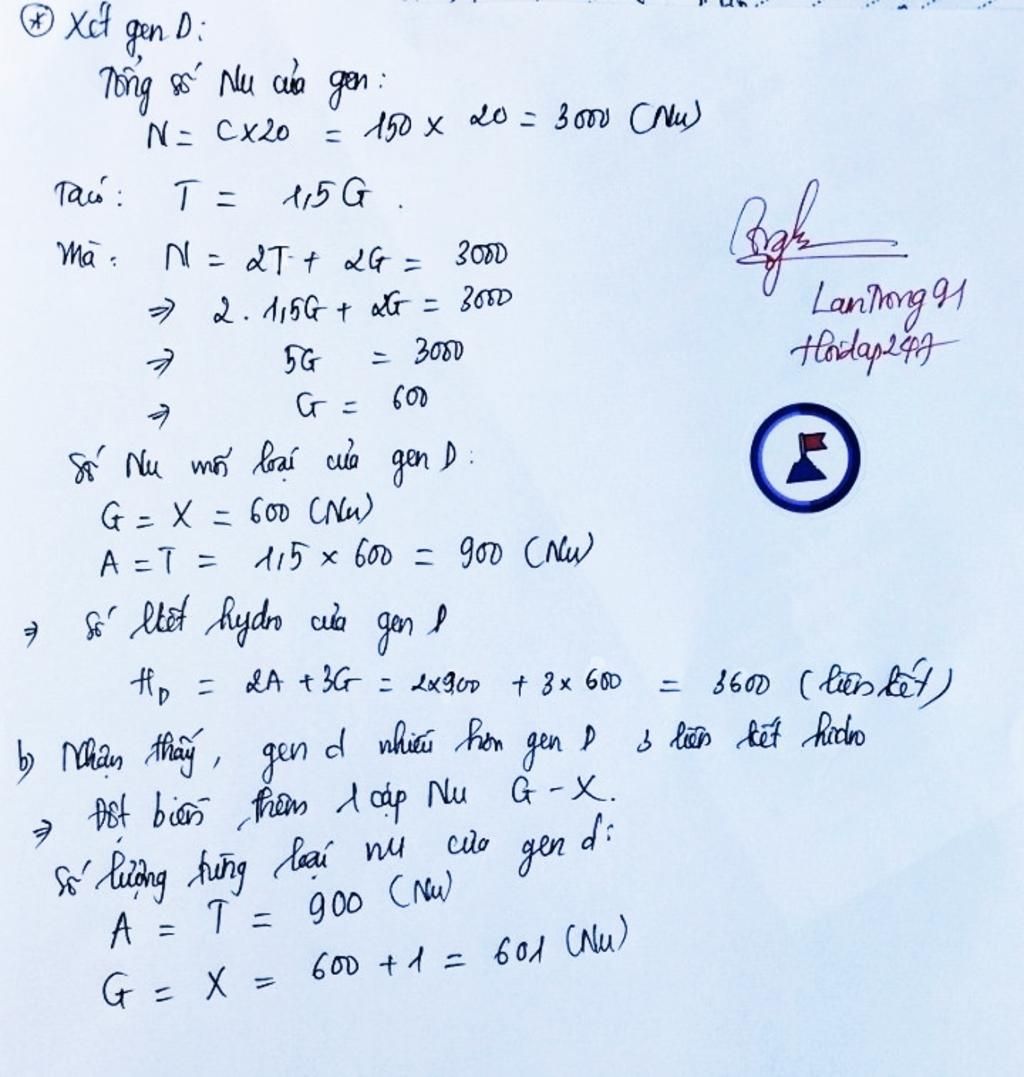 * Xét gen D:
Tổng số Nu của gen:
N = C x 20 = 150 x 20 = 3000 (Nu)
Ta có: T = 1,5G.
Mà: N = 2T + 2G = 3000
⇒ 2.1,5G + 2G = 3000
⇒ 5G = 3000
⇒ G = 600
LanTrong91
Hoidap247
Số Nu mỗi loại của gen D:
G = X = 600 (Nu)
A = T = 1,5 x 600 = 900 (Nu)
⇒ Số lkết hydro của gen D
H_D = 2A + 3G = 2x900 + 3x600 = 3600 (liên kết)
b) Nhận thấy, gen d nhiều hơn gen D 3 liên kết hidro
⇒ Đột biến thêm 1 cặp Nu G - X.
Số lượng từng loại nu của gen d:
A = T = 900 (Nu)
G = X = 600 + 1 = 601 (Nu)